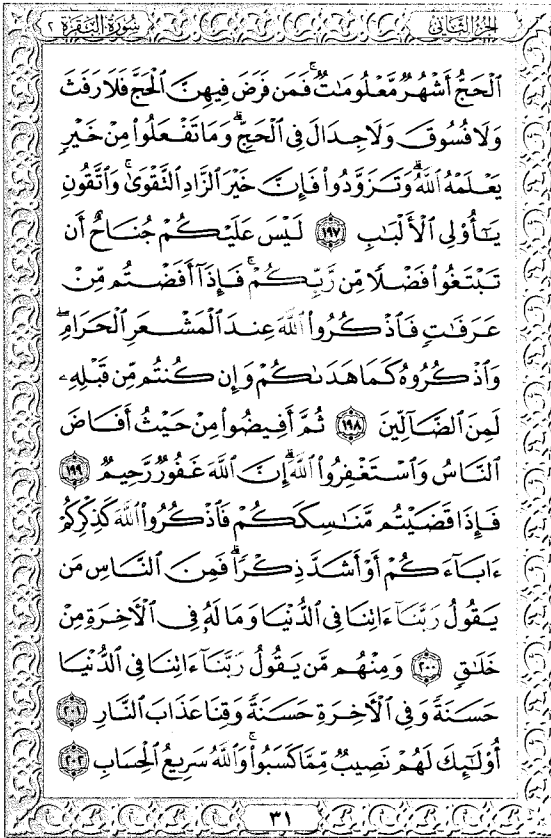 الجزء الثاني
سورة البقرة ٢
ٱلْحَجُّ أَشْهُرٌ مَّعْلُومَٰتٌ ۚ فَمَن فَرَضَ فِيهِنَّ ٱلْحَجَّ فَلَا رَفَثَ
وَلَا فُسُوقَ وَلَا جِدَالَ فِى ٱلْحَجِّ ۗ وَمَا تَفْعَلُوا۟ مِنْ خَيْرٍ
يَعْلَمْهُ ٱللَّهُ ۗ وَتَزَوَّدُوا۟ فَإِنَّ خَيْرَ ٱلزَّادِ ٱلتَّقْوَىٰ ۚ وَٱتَّقُونِ
يَٰٓأُو۟لِى ٱلْأَلْبَٰبِ ١٩٧ لَيْسَ عَلَيْكُمْ جُنَاحٌ أَن
تَبْتَغُوا۟ فَضْلًا مِّن رَّبِّكُمْ ۚ فَإِذَآ أَفَضْتُم مِّنْ
عَرَفَٰتٍ فَٱذْكُرُوا۟ ٱللَّهَ عِندَ ٱلْمَشْعَرِ ٱلْحَرَامِ ۖ
وَٱذْكُرُوهُ كَمَا هَدَىٰكُمْ وَإِن كُنتُم مِّن قَبْلِهِۦ
لَمِنَ ٱلضَّآلِّينَ ١٩٨ ثُمَّ أَفِيضُوا۟ مِنْ حَيْثُ أَفَاضَ
ٱلنَّاسُ وَٱسْتَغْفِرُوا۟ ٱللَّهَ ۚ إِنَّ ٱللَّهَ غَفُورٌ رَّحِيمٌ ١٩٩
فَإِذَا قَضَيْتُم مَّنَٰسِكَكُمْ فَٱذْكُرُوا۟ ٱللَّهَ كَذِكْرِكُمْ
ءَابَآءَكُمْ أَوْ أَشَدَّ ذِكْرًا ۗ فَمِنَ ٱلنَّاسِ مَن
يَقُولُ رَبَّنَآ ءَاتِنَا فِى ٱلدُّنْيَا وَمَا لَهُۥ فِى ٱلْأَخِرَةِ مِنْ
خَلَٰقٍ ٢٠٠ وَمِنْهُم مَّن يَقُولُ رَبَّنَآ ءَاتِنَا فِى ٱلدُّنْيَا
حَسَنَةً وَفِى ٱلْأَخِرَةِ حَسَنَةً وَقِنَا عَذَابَ ٱلنَّارِ ٢٠١
أُو۟لَٰٓئِكَ لَهُمْ نَصِيبٌ مِّمَّا كَسَبُوا۟ ۚ وَٱللَّهُ سَرِيعُ ٱلْحِسَابِ ٢٠٢
٣١